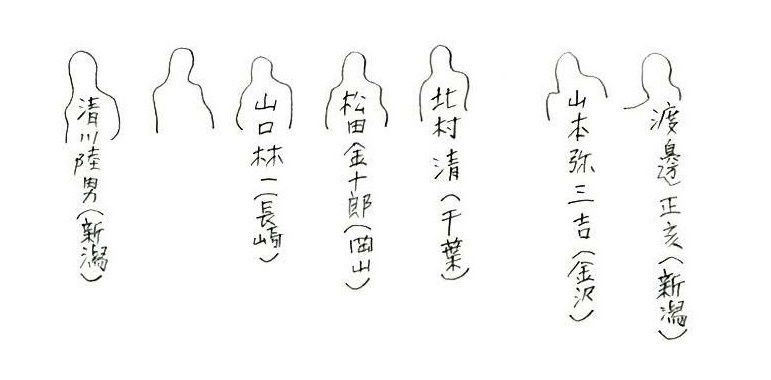 渡邊正亥(新潟)
山本弥三吉(金沢)
北村清(千葉)
松田金十郎(岡山)
山口林一(長崎)
清川陸男(新潟)